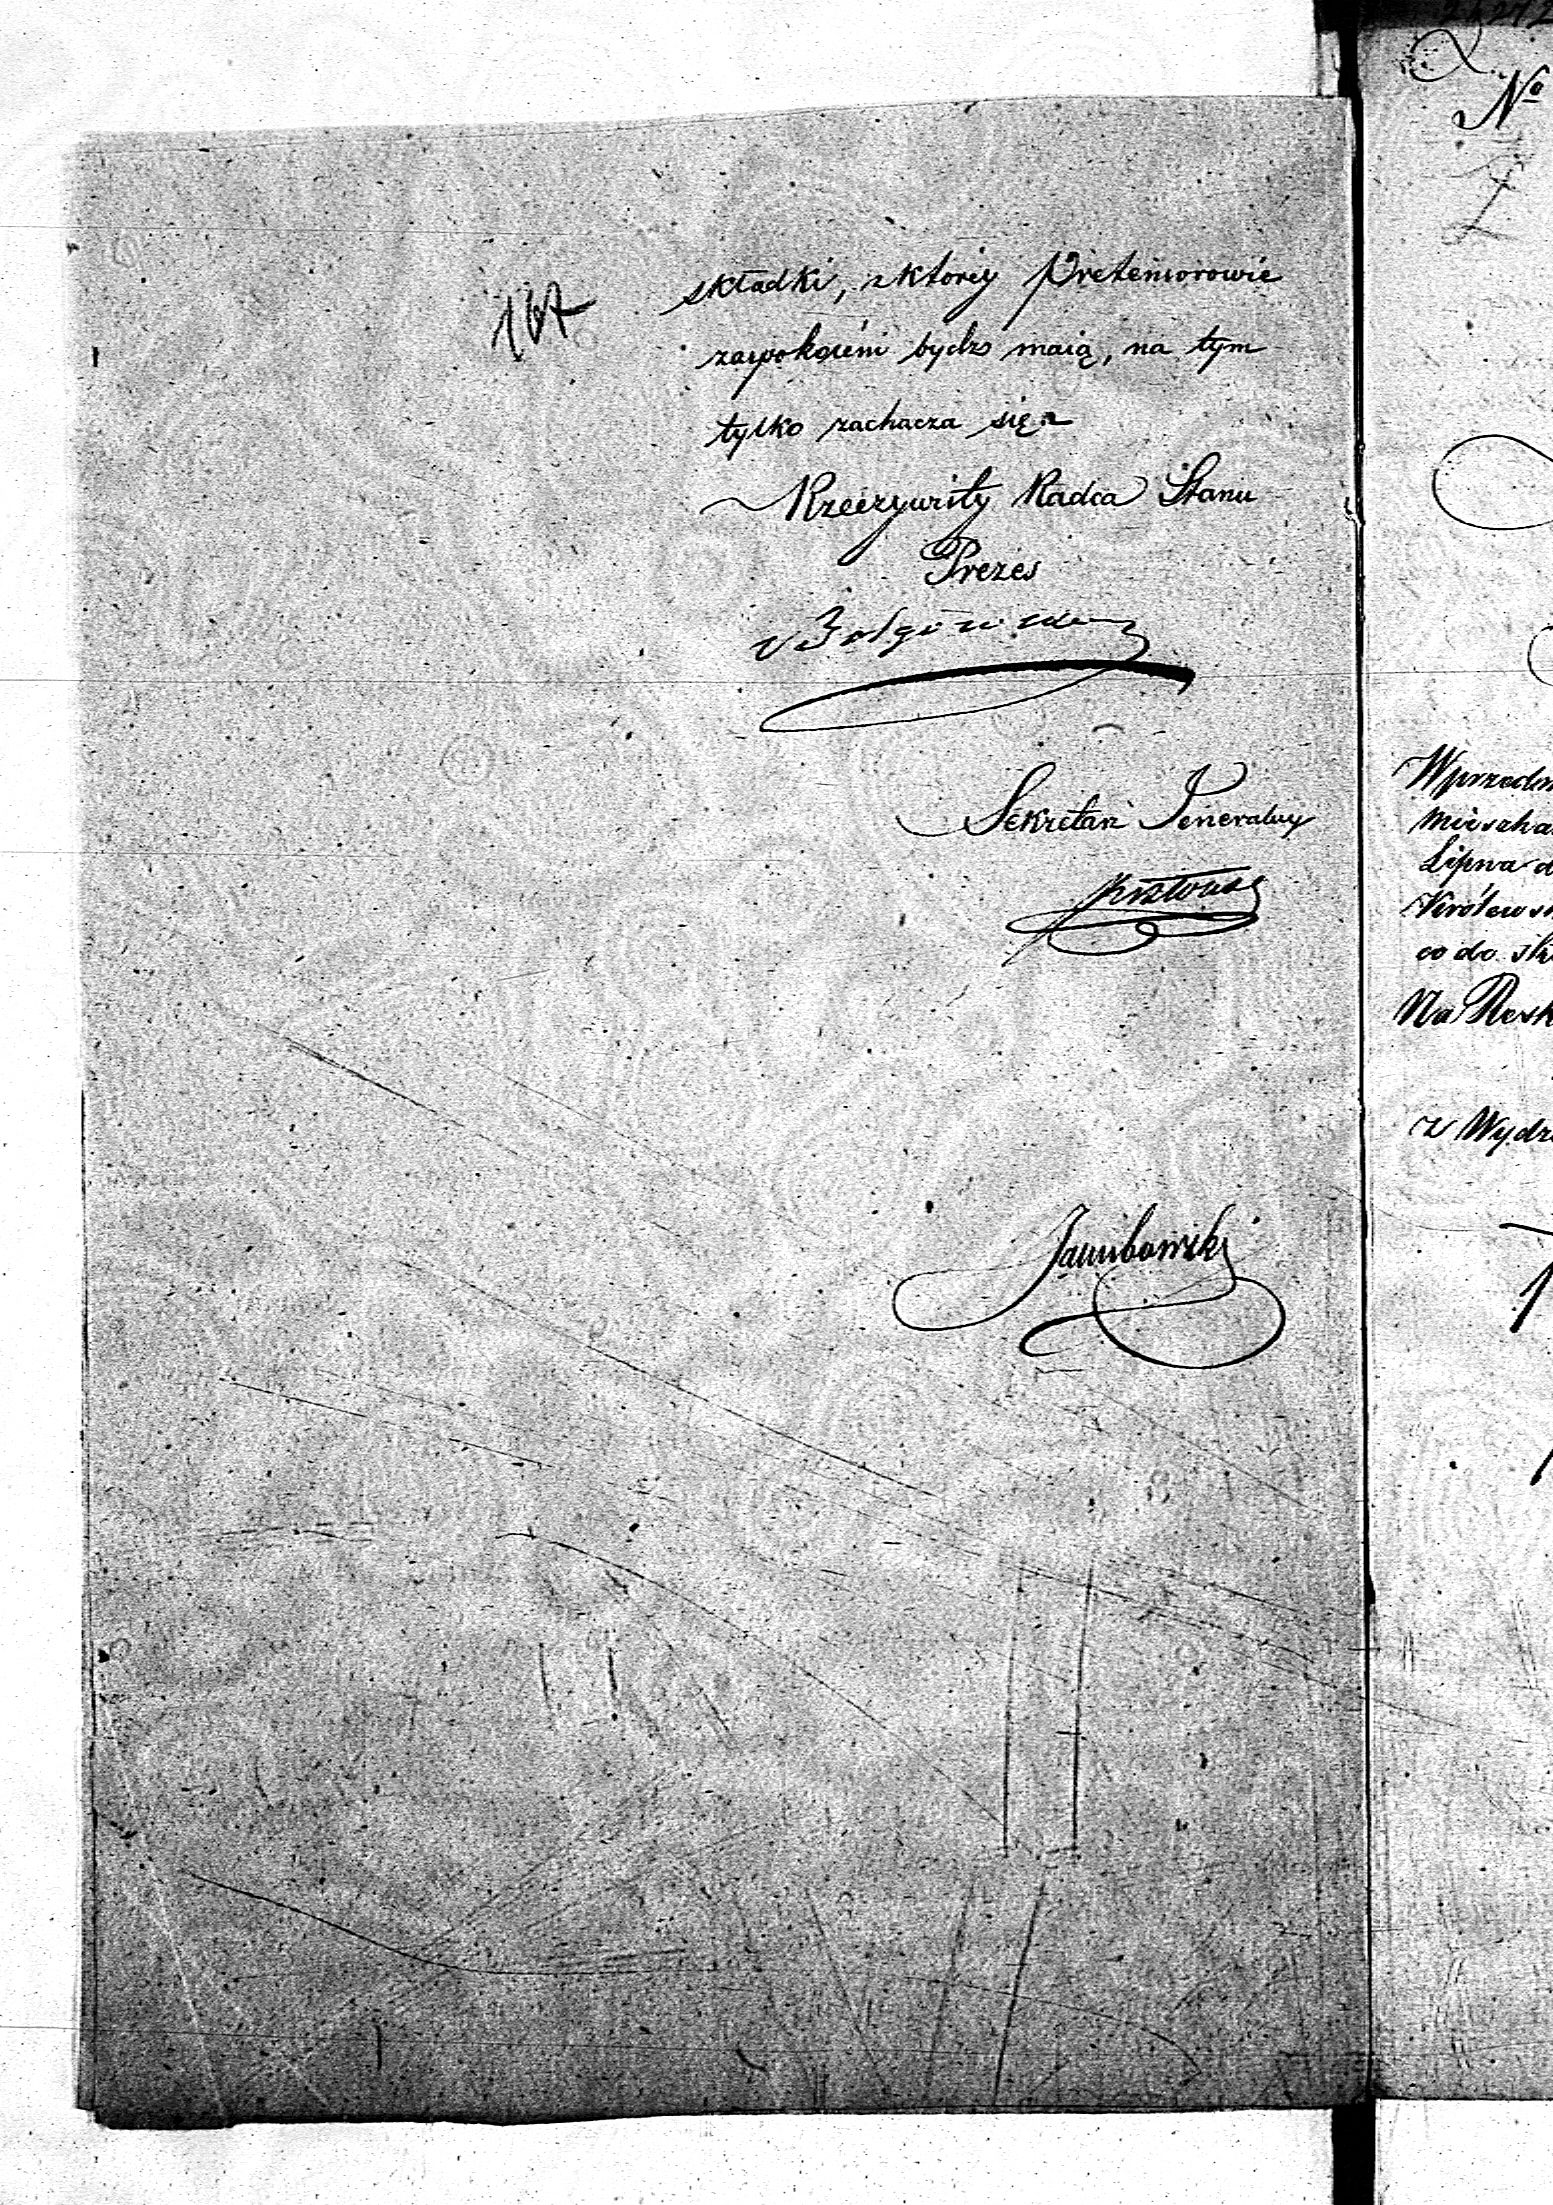 167
składki, z ktorey Pretensorowie
zaspokoieni bydz maią, na tym
tylko zachacza się
Rzeczywisty Radca Stanu
Prezes
Sekretarz Jeneralny
No
Wprzedm
Mieszka
Lipna d
Królewsk
co do sk
Na Resk
z Wydz